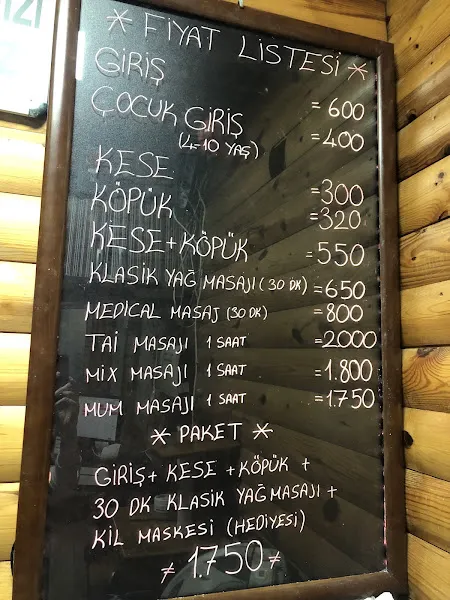 * FİYAT LİSTESİ *
GİRİŞ = 600
ÇOCUK GİRİŞ = 400
(4-10 YAŞ)
KESE = 300
KÖPÜK = 320
KESE + KÖPÜK = 550
KLASİK YAĞ MASAJI (30 DK) = 650
MEDICAL MASAJ (30 DK) = 800
TAİ MASAJI 1 SAAT = 2000
MİX MASAJI 1 SAAT = 1.800
MUM MASAJI 1 SAAT = 1.750
* PAKET *
GİRİŞ + KESE + KÖPÜK +
30 DK KLASİK YAĞ MASAJI +
KİL MASKESİ (HEDİYESİ)
≠ 1.750 ≠